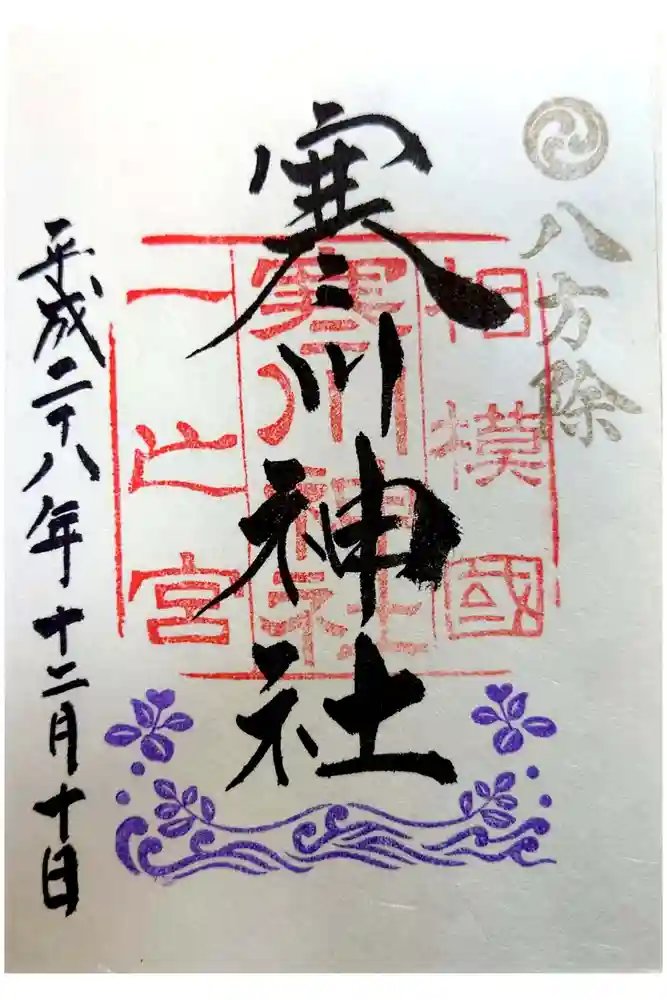 八方除
相模國
寒川神社
一之宮
寒川神社
平成二十八年十二月十日